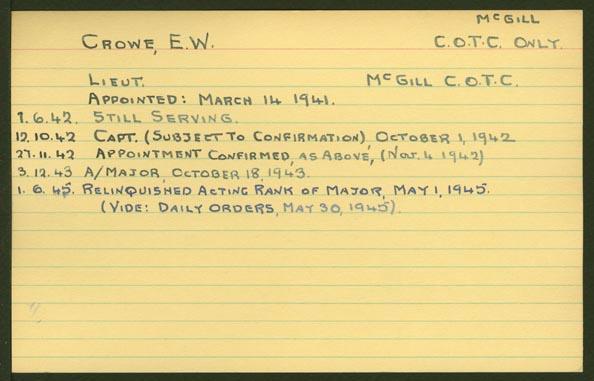 McGILL
CROWE, E.W. C.O.T.C. ONLY.
LIEUT. McGILL C.O.T.C.
APPOINTED: MARCH 14 1941.
1.6.42. STILL SERVING.
12.10.42 CAPT. (SUBJECT TO CONFIRMATION), OCTOBER 1, 1942
27.11.42 APPOINTMENT CONFIRMED, AS ABOVE, (NOV. 4 1942)
3.12.43 A/MAJOR, OCTOBER 18, 1943.
1.6.45. RELINQUISHED ACTING RANK OF MAJOR, MAY 1, 1945.
(VIDE: DAILY ORDERS, MAY 30, 1945).